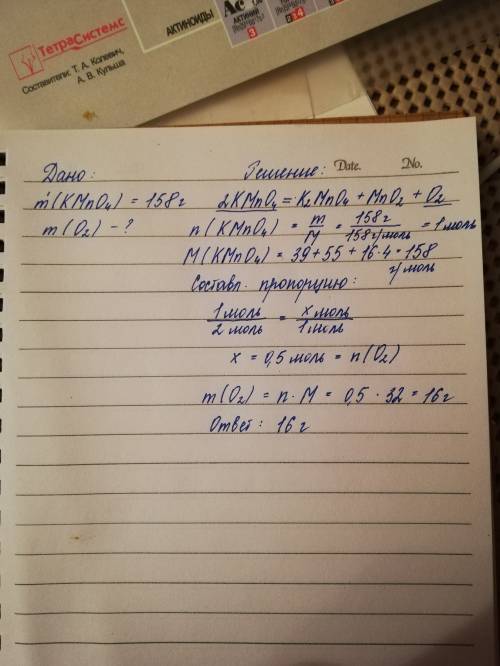 ТетраСистемс
Составители: Т. А. Колевич,
А. В. Кульша
АКТИНОИДЫ
Ac
АКТИНИЙ
3
Дано:
Решение: Date. No.
m(KMnO4) = 158 г
2KMnO4 = K2MnO4 + MnO2 + O2
m(O2) - ?
n(KMnO4) = m/M = 158 г/158 г/моль = 1 моль
M(KMnO4) = 39 + 55 + 16·4 = 158 г/моль
Составл. пропорцию:
1 моль/2 моль = x моль/1 моль
x = 0,5 моль = n(O2)
m(O2) = n·M = 0,5 · 32 = 16 г
Ответ: 16 г